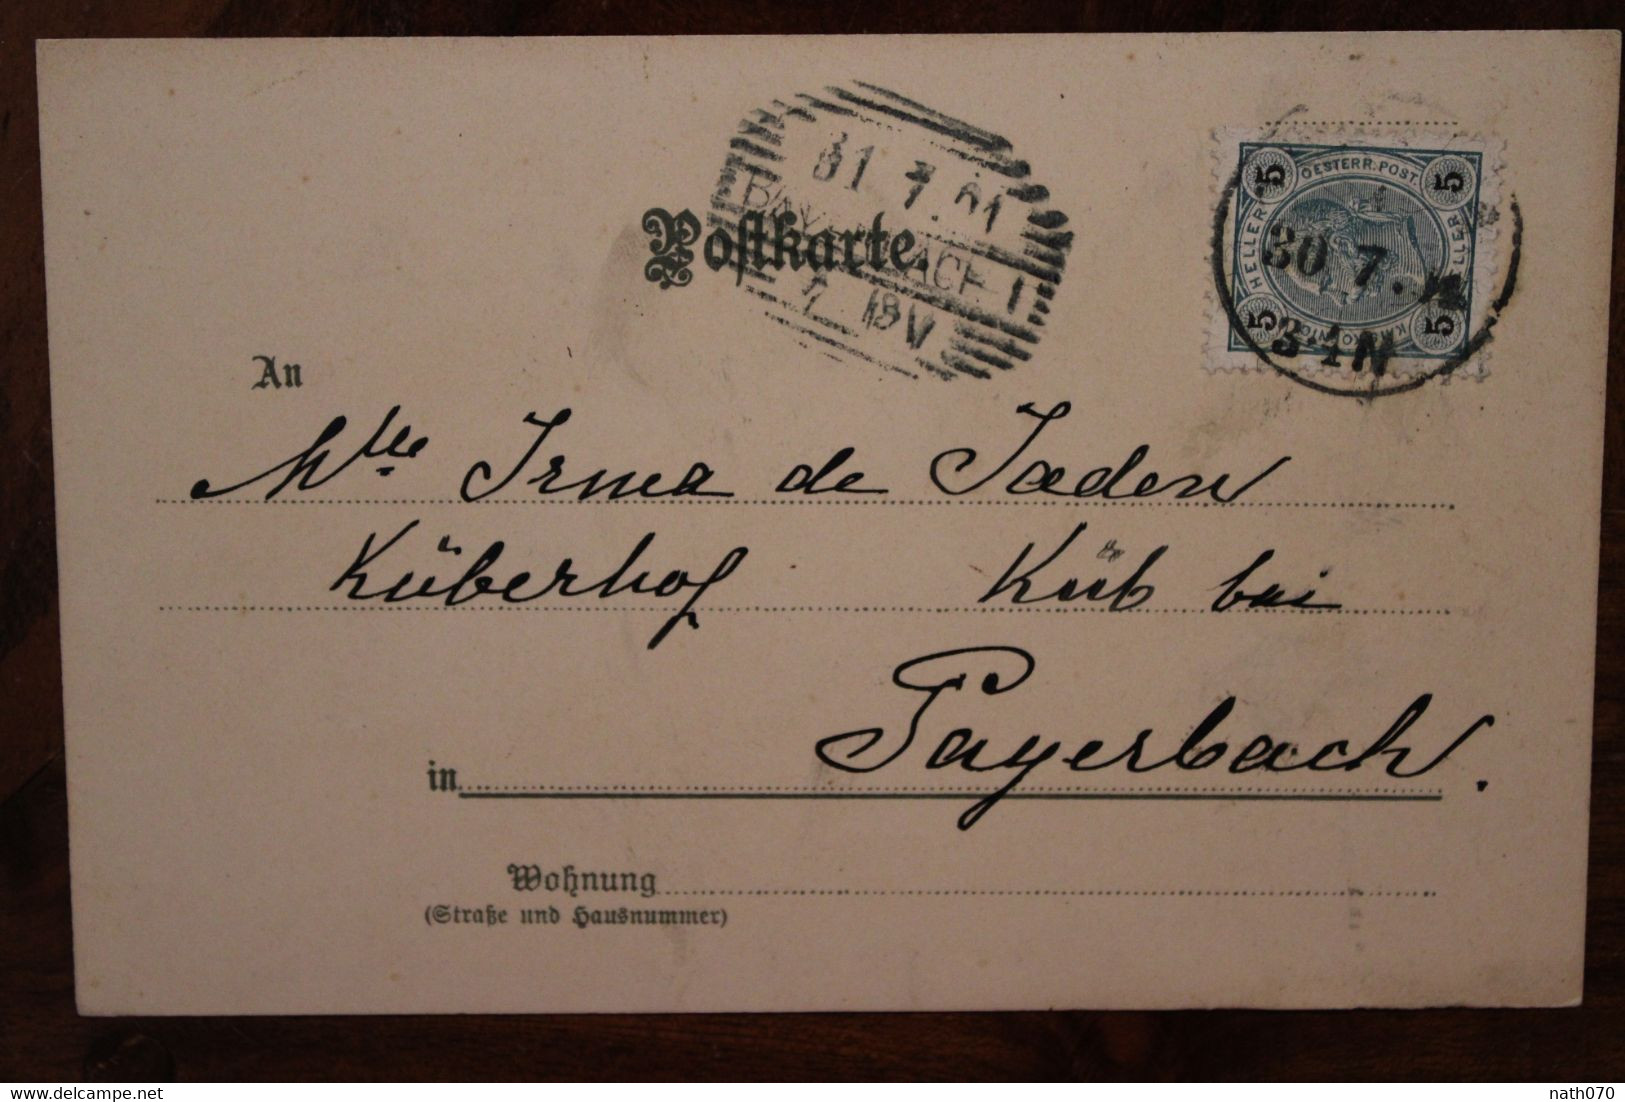 31 7.01
Postkarte.
OESTERR. POST.
HELLER
HELLER
5
5
5
5
30 7.
3-4N
An
Mlle Irma de Jaeden
Küberhof Küb bei
in Payerbach.
Wohnung
(Straße und Hausnummer)
delcampe.net
nath070